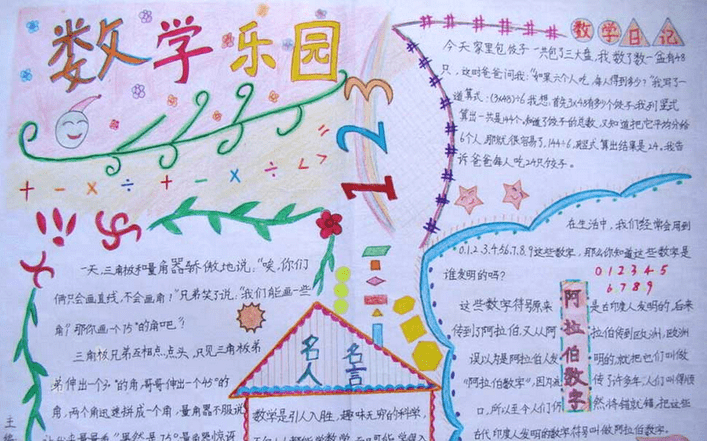 数学乐园
+ - × ÷ + - × ÷ < >
1 2 3
数学日记
今天家里包饺子一共包了三大盘,我数了数一盆有48
只,这时爸爸问我:"如果六个人吃,每人得到多少?"我写了一
道算式:(3×48)÷6我想:首先3×48有多少个饺子.我列竖式
算出一共是144个,知道了饺子的总数,又知道把它平均分给
6个人,那就很容易了,144÷6,竖式算出结果是24。我告
诉爸爸每人吃24只饺子。
一天,三角板和量角器骄傲地说:"唉,你们
俩只会画直线,不会画角!"兄弟笑了说:"我们能画一些
角?那你画一个75°的角吧?"
三角板兄弟互相点点头,只见三角板弟
弟伸出一个30°的角,哥哥伸出一个45°的
角,两个角迅速拼成一个角,量角器不服说
名人名言
数学是引人入胜,趣味无穷的科学,
在生活中,我们经常会用到
0.1.2.3.4.5.6.7.8.9这些数字,那么你知道这些数字是
谁发明的吗?
0 1 2 3 4 5
6 7 8 9
阿拉伯数字
这些数字符号原来是古印度人发明的,后来
传到了阿拉伯,又从阿拉伯传到欧洲,欧洲
误以为是阿拉伯人发明的,就把它们叫做
"阿拉伯数字",因为传了许多年,人们叫得顺
口,所以至今人们仍然将错就错,把这些
古代印度人发明的数字符号叫做阿拉伯数字。